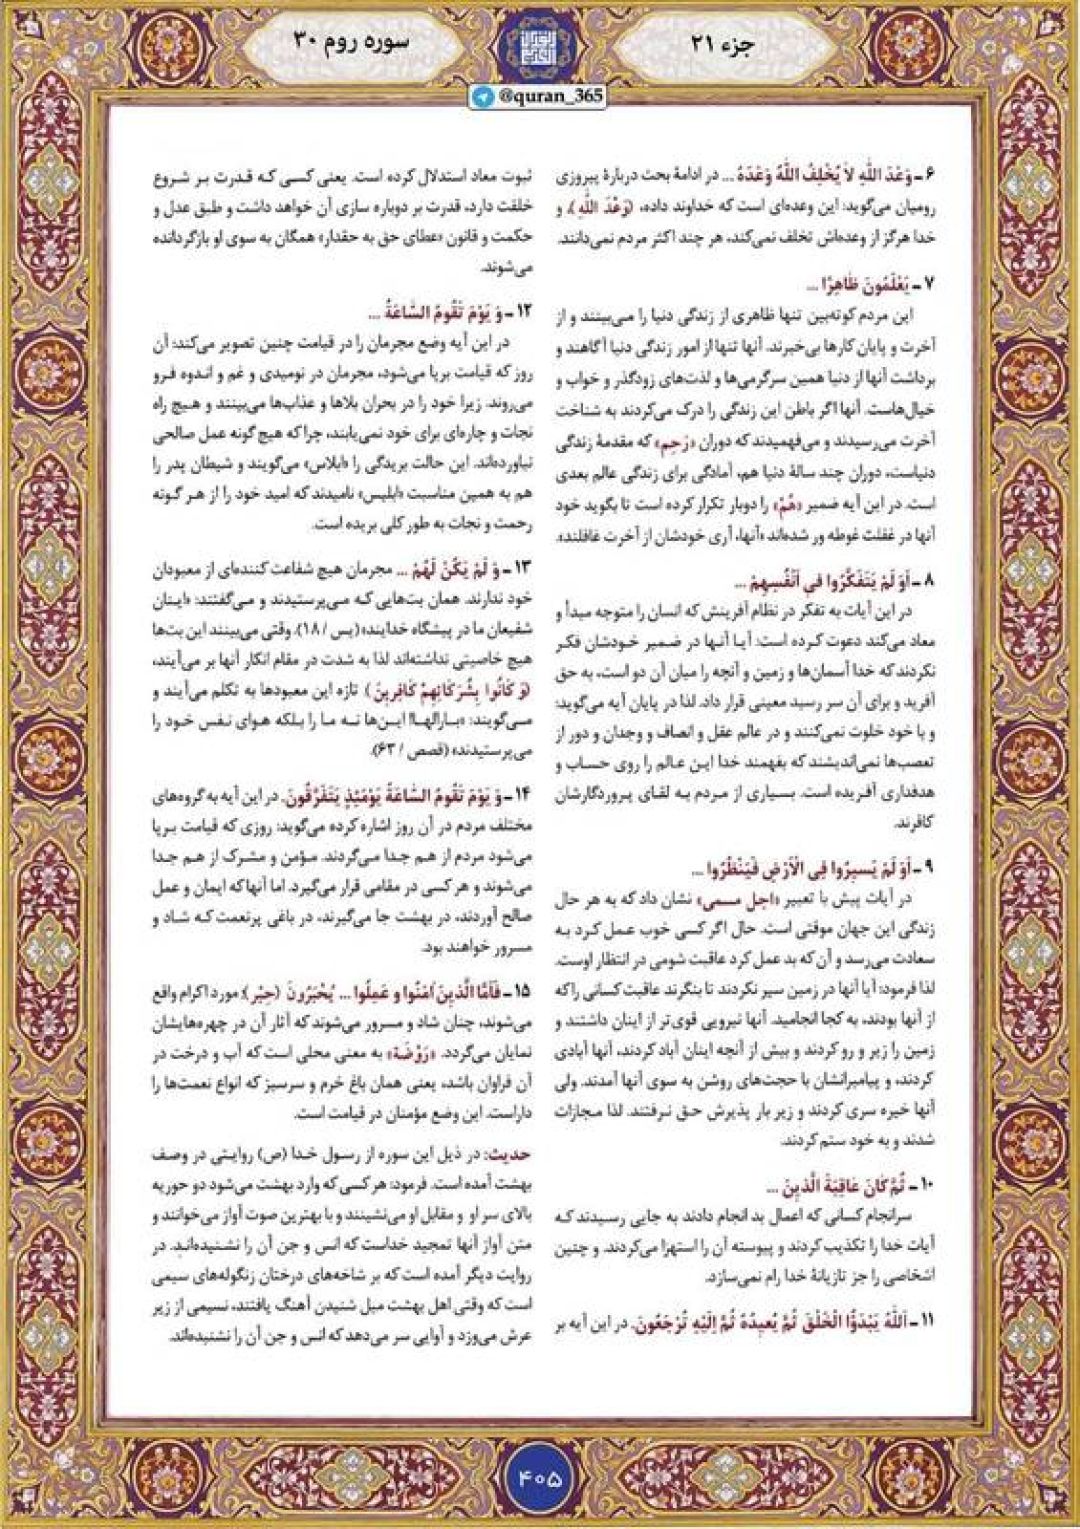 جزء ۲۱
سوره روم ۳۰
@quran_365
۶ـ وَعْدَ اللّٰهِ لاَ يُخْلِفُ اللّٰهُ وَعْدَهُ ... در ادامهٔ بحث دربارهٔ پیروزی
رومیان می‌گوید: این وعده‌ای است که خداوند داده، (وَعْدَ اللّٰهِ)، و
خدا هرگز از وعده‌اش تخلف نمی‌کند، هر چند اکثر مردم نمی‌دانند.
۷ـ يَعْلَمُونَ ظَاهِرًا ...
این مردم کوته‌بین تنها ظاهری از زندگی دنیا را می‌بینند و از
آخرت و پایان کارها بی‌خبرند. آنها تنها از امور زندگی دنیا آگاهند و
برداشت آنها از دنیا همین سرگرمی‌ها و لذت‌های زودگذر و خواب و
خیال‌هاست. آنها اگر باطن این زندگی را درک می‌کردند به شناخت
آخرت می‌رسیدند و می‌فهمیدند که دوران «رَحِم» که مقدمهٔ زندگی
دنیاست، دوران چند سالهٔ دنیا هم، آمادگی برای زندگی عالم بعدی
است. در این آیه ضمیر «هُمْ» را دوبار تکرار کرده است تا بگوید خود
آنها در غفلت غوطه ور شده‌اند «آنها، آری خودشان از آخرت غافلند».
۸ـ أَوَ لَمْ يَتَفَكَّرُوا فِي أَنْفُسِهِمْ ...
در این آیات به تفکر در نظام آفرینش که انسان را متوجه مبدأ و
معاد می‌کند دعوت کرده است: آیا آنها در ضمیر خودشان فکر
نکردند که خدا آسمان‌ها و زمین و آنچه را میان آن دو است، به حق
آفرید و برای آن سر رسید معینی قرار داد. لذا در پایان آیه می‌گوید:
و با خود خلوت نمی‌کنند و در عالم عقل و انصاف و وجدان و دور از
تعصب‌ها نمی‌اندیشند که بفهمند خدا این عالم را روی حساب و
هدفداری آفریده است. بسیاری از مردم به لقای پروردگارشان
کافرند.
۹ـ أَوَ لَمْ يَسِيرُوا فِي الْأَرْضِ فَيَنْظُرُوا ...
در آیات پیش با تعبیر «اجل مسمی» نشان داد که به هر حال
زندگی این جهان موقتی است. حال اگر کسی خوب عمل کرد به
سعادت می‌رسد و آن که بد عمل کرد عاقبت شومی در انتظار اوست.
لذا فرمود: آیا آنها در زمین سیر نکردند تا بنگرند عاقبت کسانی را که
از آنها بودند، به کجا انجامید. آنها نیرویی قوی‌تر از اینان داشتند و
زمین را زیر و رو کردند و بیش از آنچه اینان آباد کردند، آنها آبادی
کردند، و پیامبرانشان با حجت‌های روشن به سوی آنها آمدند. ولی
آنها خیره سری کردند و زیر بار پذیرش حق نرفتند. لذا مجازات
شدند و به خود ستم کردند.
۱۰ـ ثُمَّ كَانَ عَاقِبَةَ الَّذِينَ ...
سرانجام کسانی که اعمال بد انجام دادند به جایی رسیدند که
آیات خدا را تکذیب کردند و پیوسته آن را استهزا می‌کردند. و چنین
اشخاصی را جز تازیانهٔ خدا رام نمی‌سازد.
۱۱ـ اَللّٰهُ يَبْدَؤُا الْخَلْقَ ثُمَّ يُعِيدُهُ ثُمَّ إِلَيْهِ تُرْجَعُونَ. در این آیه بر
ثبوت معاد استدلال کرده است. یعنی کسی که قدرت بر شروع
خلقت دارد، قدرت بر دوباره سازی آن خواهد داشت و طبق عدل و
حکمت و قانون «عطای حق به حقدار» همگان به سوی او بازگردانده
می‌شوند.
۱۲ـ وَ يَوْمَ تَقُومُ السَّاعَةُ ...
در این آیه وضع مجرمان را در قیامت چنین تصویر می‌کند: آن
روز که قیامت برپا می‌شود، مجرمان در نومیدی و غم و اندوه فرو
می‌روند. زیرا خود را در بحران بلاها و عذاب‌ها می‌بینند و هیچ راه
نجات و چاره‌ای برای خود نمی‌یابند، چرا که هیچ گونه عمل صالحی
نیاورده‌اند. این حالت بریدگی را «ابلاس» می‌گویند و شیطان پدر را
هم به همین مناسبت «ابلیس» نامیدند که امید خود را از هر گونه
رحمت و نجات به طور کلی بریده است.
۱۳ـ وَ لَمْ يَكُنْ لَهُمْ ... مجرمان هیچ شفاعت کننده‌ای از معبودان
خود ندارند. همان بت‌هایی که می‌پرستیدند و می‌گفتند: «اینان
شفیعان ما در پیشگاه خدایند» (یس / ۱۸). وقتی می‌بینند این بت‌ها
هیچ خاصیتی نداشته‌اند لذا به شدت در مقام انکار آنها بر می‌آیند،
(وَ كَانُوا بِشُرَكَائِهِمْ كَافِرِينَ) تازه این معبودها به تکلم می‌آیند و
می‌گویند: «بارالها! این‌ها نه ما را بلکه هوای نفس خود را
می‌پرستیدند» (قصص / ۶۳).
۱۴ـ وَ يَوْمَ تَقُومُ السَّاعَةُ يَوْمَئِذٍ يَتَفَرَّقُونَ. در این آیه به گروه‌های
مختلف مردم در آن روز اشاره کرده می‌گوید: روزی که قیامت برپا
می‌شود مردم از هم جدا می‌گردند. مؤمن و مشرک از هم جدا
می‌شوند و هر کسی در مقامی قرار می‌گیرد. اما آنها که ایمان و عمل
صالح آوردند، در بهشت جا می‌گیرند، در باغی پرنعمت که شاد و
مسرور خواهند بود.
۱۵ـ فَأَمَّا الَّذِينَ آمَنُوا وَ عَمِلُوا ... يُحْبَرُونَ (حِبْر): مورد اکرام واقع
می‌شوند، چنان شاد و مسرور می‌شوند که آثار آن در چهره‌هایشان
نمایان می‌گردد. «رَوْضَة» به معنی محلی است که آب و درخت در
آن فراوان باشد، یعنی همان باغ خرم و سرسبز که انواع نعمت‌ها را
داراست. این وضع مؤمنان در قیامت است.
حدیث: در ذیل این سوره از رسول خدا (ص) روایتی در وصف
بهشت آمده است. فرمود: هر کسی که وارد بهشت می‌شود دو حوریه
بالای سر او و مقابل او می‌نشینند و با بهترین صوت آواز می‌خوانند و
متن آواز آنها تمجید خداست که انس و جن آن را نشنیده‌اند. در
روایت دیگر آمده است که بر شاخه‌های درختان زنگوله‌های سیمی
است که وقتی اهل بهشت میل شنیدن آهنگ یافتند، نسیمی از زیر
عرش می‌وزد و آوایی سر می‌دهد که انس و جن آن را نشنیده‌اند.
۴۰۵